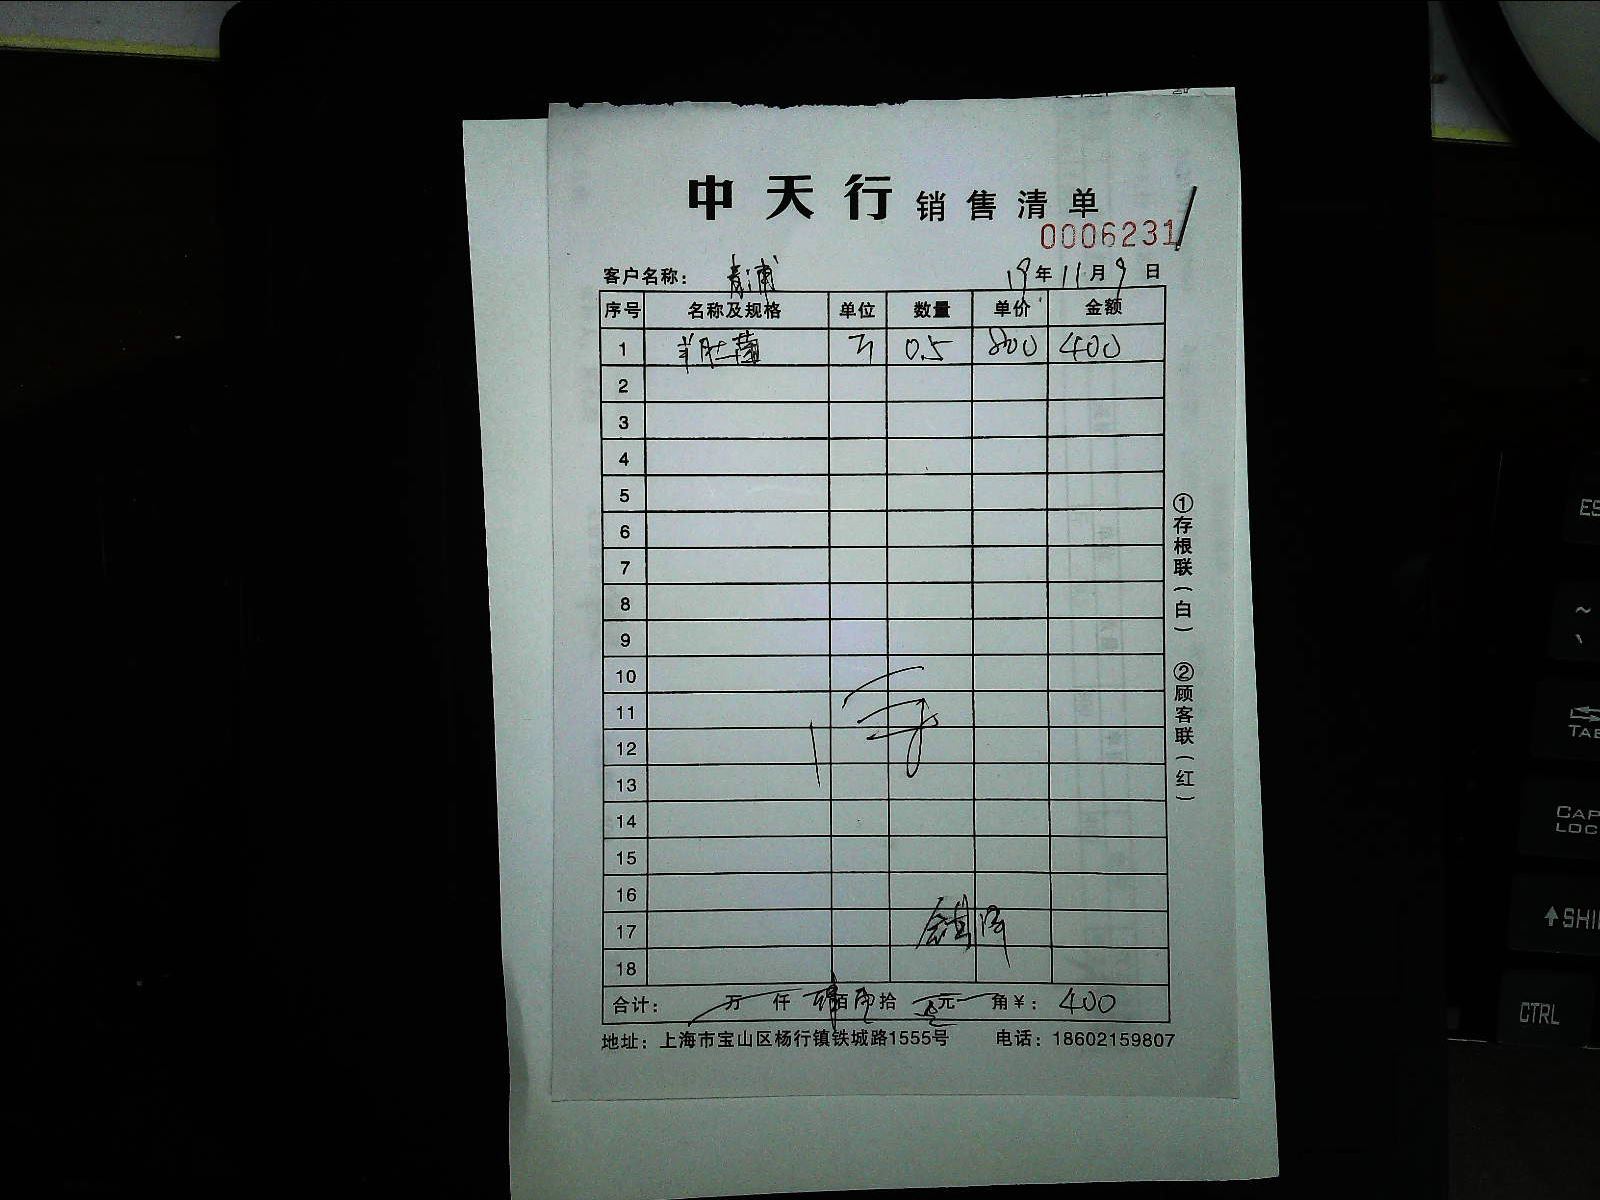 中天行 销售清单
0006231
客户名称： 青浦 19年11月9日
序号 名称及规格 单位 数量 单价 金额
1 羊肚菌 斤 0.5 800 400
2
3
4
5
6
7
8
9
10
11
12
13
14
15
16
17
18
合计： 万 仟 肆佰 拾 元 角￥： 400
地址：上海市宝山区杨行镇铁城路1555号 电话：18602159807
①存根联（白） ②顾客联（红）
ES
~
TAB
CAP
LOC
SHI
CTRL